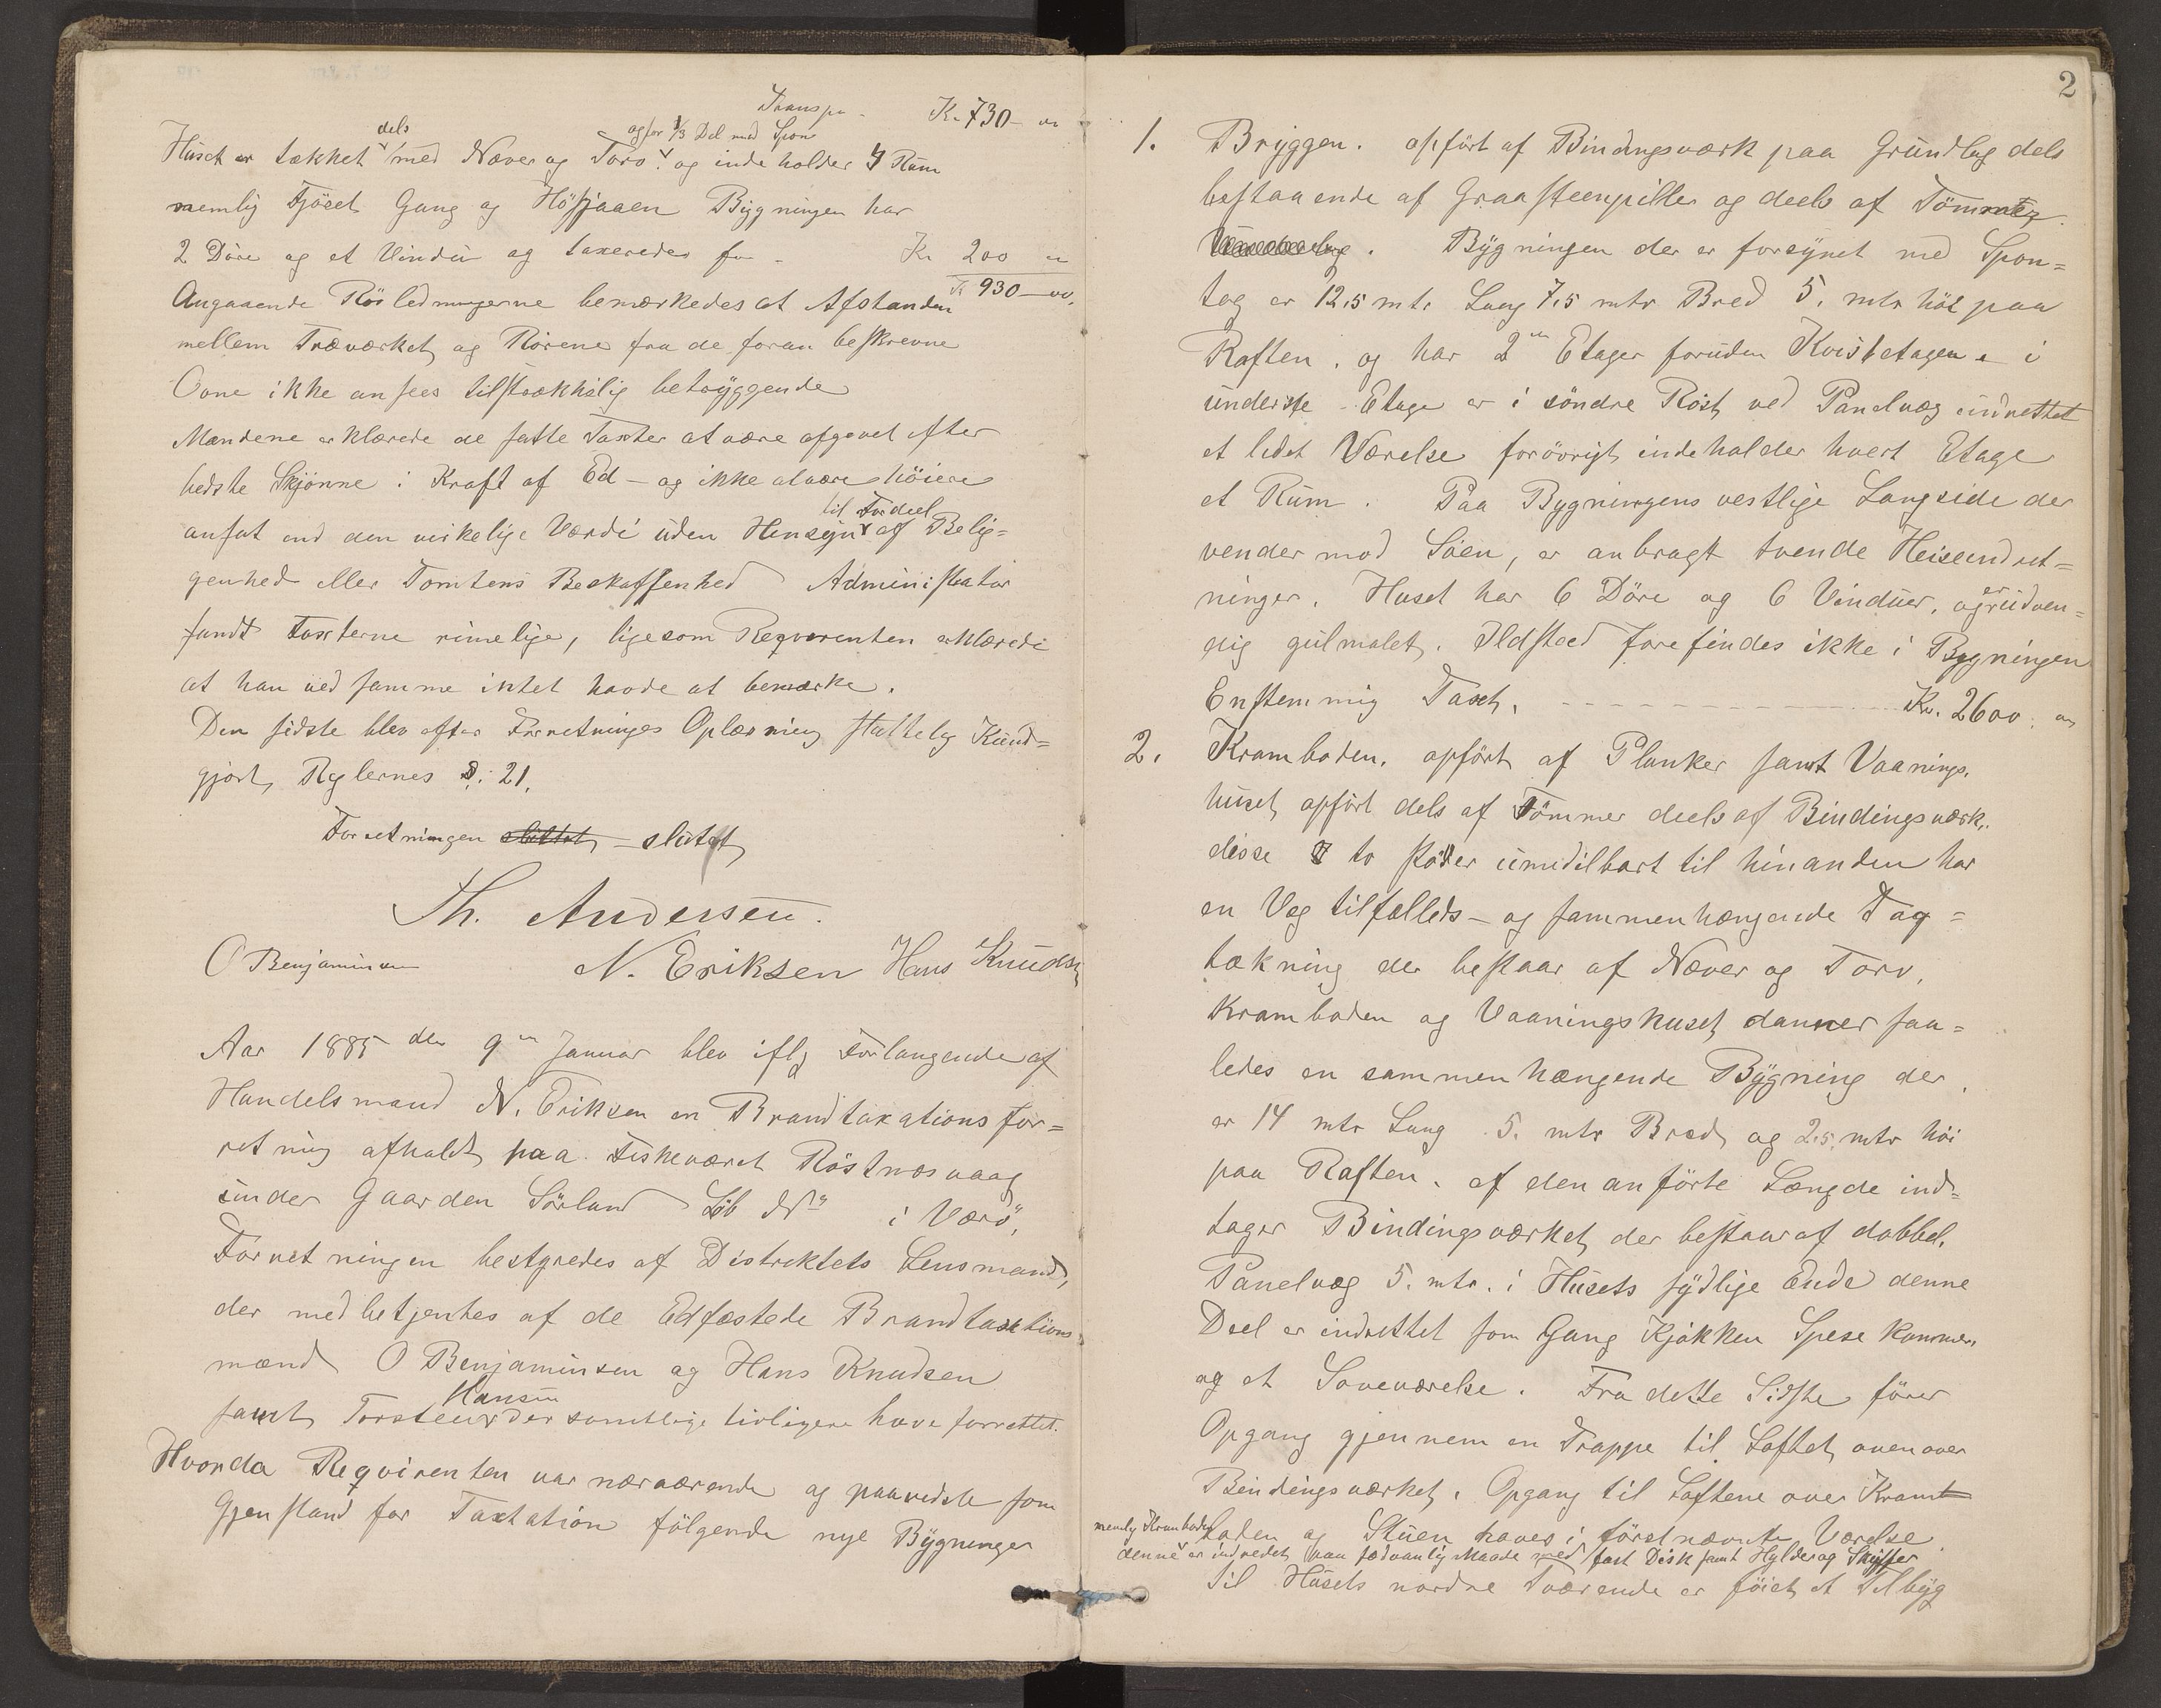 Transp. Kr 730 - "
Huset er tækket dels med Næver og Torv og for 1/3 Del med Spon og inde holder 4 Rum
nemlig Fjöset Gang og Hösjaaen Bygningen har
2 Döre og et Vindu og taxeredes for - Kr 200 "
Angaaende Rörledningerne bemærkedes at Afstanden Kr 930 - "
mellem Træværket og Rörene fra de foran beskrevne
Ovne ikke ansees tilstrækkelig betryggende
Mændene erklærede de satte Taxter at være afgevet efter
bedste Skjönne i Kraft af Ed - og ikke at være höiere
ansat end den virkelige Værdi uden Hensyn til Fordeel af Belig=
genhed eller Tomtens Beskaffenhed Administrator
fandt Taxterne rimelige, ligesom Reqvirenten erklærede
at han ved samme intet havde at bemærke.
Den sidste blev efter Forretninges Oplæsning stattelig Kund=
gjort, Reglernes §: 21.
Forretningen sluttet - sluttet
Th. Andersen.
O Benjaminsen N. Eriksen Hans Knudsen
Aar 1885 den 9de Januar blev iflg Forlangende af
Handelsmand N. Eriksen en Brandtaxationsfor=
retning afholdt paa Fiskeværet Röstnæsvaag
under Gaarden Sörland Löb No i Værö,
Forretningen bestyredes af Distriktets Lensmand,
der medbetjentes af de Edfæstede Brandtaxtions
mænd O Benjaminsen og Hans Knudsen
samt Torsteen Hansen der samtlige tidligere have forrettet.
Hvorda Reqvirenten var nærværende og paaviste som
Gjenstand for Taxtation fölgende nye Bygninger
2
1. Bryggen. opfört af Bindingsværk paa Grundlag dels
bestaaende af Graasteenpiller og deels af Tömmer
. Bygningen der er forsynet med Spon=
tag er 12,5 mtr Lang 7,5 mtr Bred 5. mtr höi paa
Raften. og har 2de Etager foruden Kvistetagen i
underste Etage er i söndre Röst ved Panelvæg indrettet
et lidet Værelse forövrigt indeholder hvert Etage
et Rum. Paa Bygningens vestlige Langside der
vender mod Söen, er anbragt tvende Heiseindret=
ninger. Huset har 6 Döre og 6 Vinduer, og er udven=
dig gulmalet. Ildsted forefindes ikke i Bygningen
Enstemmig Taxt. - - - Kr. 2600. "
2. Kramboden. opfört af Planker samt Vaanings.
huset opfört dels af Tömmer deels af Bindingsværk.
disse to Stöder umidelbart til hinanden har
en Veg tilfælleds - og sammenhængende Tag=
tækning der bestaar af Næver og Torv,
Kramboden og Vaaningshuset danner saa=
ledes en sammenhængende Bygning der,
er 14 mtr Lang 5. mtr Bred og 2,5 mtr höi
paa Raften. af den anförte Længde ind=
tager Bindingsværket der bestaar af dobbel.
Panelvæg 5. mtr. i Husets sydlige Ende denne
Deel er indrettet som Gang Kjökken Spese kammer
og et Soveværelse. Fra dette Sidste förer
Opgang gjennem en Trappe til Loftet ovenover
Bindingsværket. Opgang til Loftene over Kram
boden og Stuen haves i förstnævnte Værelse
nemlig Kramboden
denne er indredet paa sædvanlig Maade med fast Disk samt Hylder og Skuffer
Til Husets nordre Tværende er föiet et Tilbyg